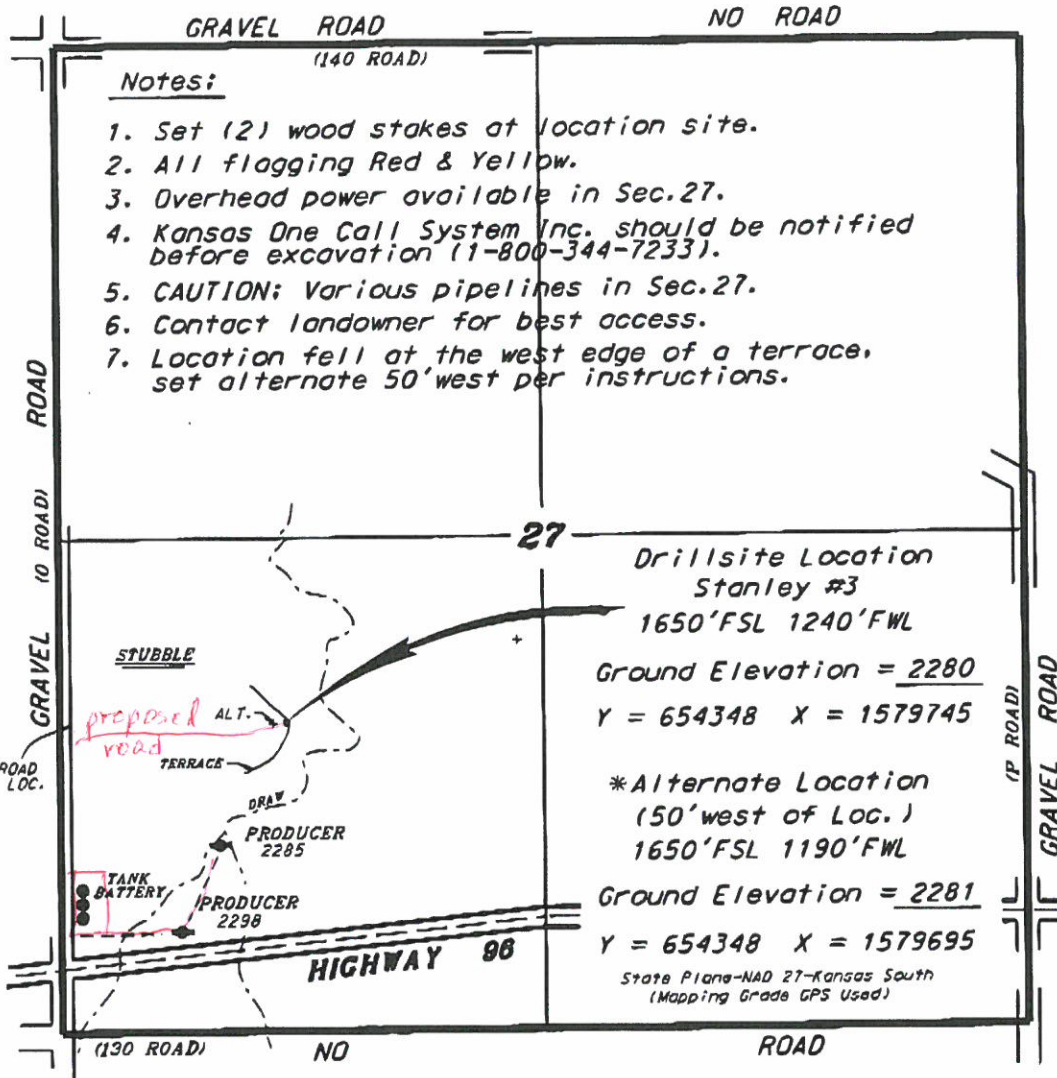 GRAVEL ROAD
(140 ROAD)
NO ROAD
Notes:
1. Set (2) wood stakes at location site.
2. All flagging Red & Yellow.
3. Overhead power available in Sec.27.
4. Kansas One Call System Inc. should be notified
before excavation (1-800-344-7233).
5. CAUTION: Various pipelines in Sec.27.
6. Contact landowner for best access.
7. Location fell at the west edge of a terrace,
set alternate 50'west per instructions.
GRAVEL (O ROAD) ROAD
27
Drillsite Location
Stanley #3
1650'FSL 1240'FWL
Ground Elevation = 2280
Y = 654348 X = 1579745
*Alternate Location
(50'west of Loc.)
1650'FSL 1190'FWL
Ground Elevation = 2281
Y = 654348 X = 1579695
State Plane-NAD 27-Kansas South
(Mapping Grade GPS Used)
STUBBLE
proposed
road
ALT.
TERRACE
ROAD
LOC.
DRAW
PRODUCER
2285
TANK
BATTERY
PRODUCER
2298
HIGHWAY 96
(P ROAD)
GRAVEL ROAD
(130 ROAD)
NO ROAD